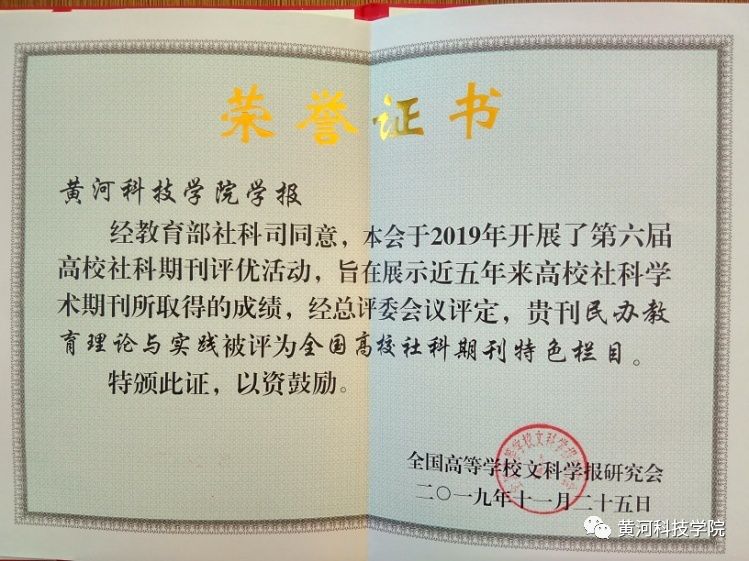 荣誉证书
黄河科技学院学报
经教育部社科司同意，本会于2019年开展了第六届
高校社科期刊评优活动，旨在展示近五年来高校社科学
术期刊所取得的成绩，经总评委会议评定，贵刊民办教
育理论与实践被评为全国高校社科期刊特色栏目。
特颁此证，以资鼓励。
全国高等学校文科学报研究会
二〇一九年十一月二十五日
黄河科技学院